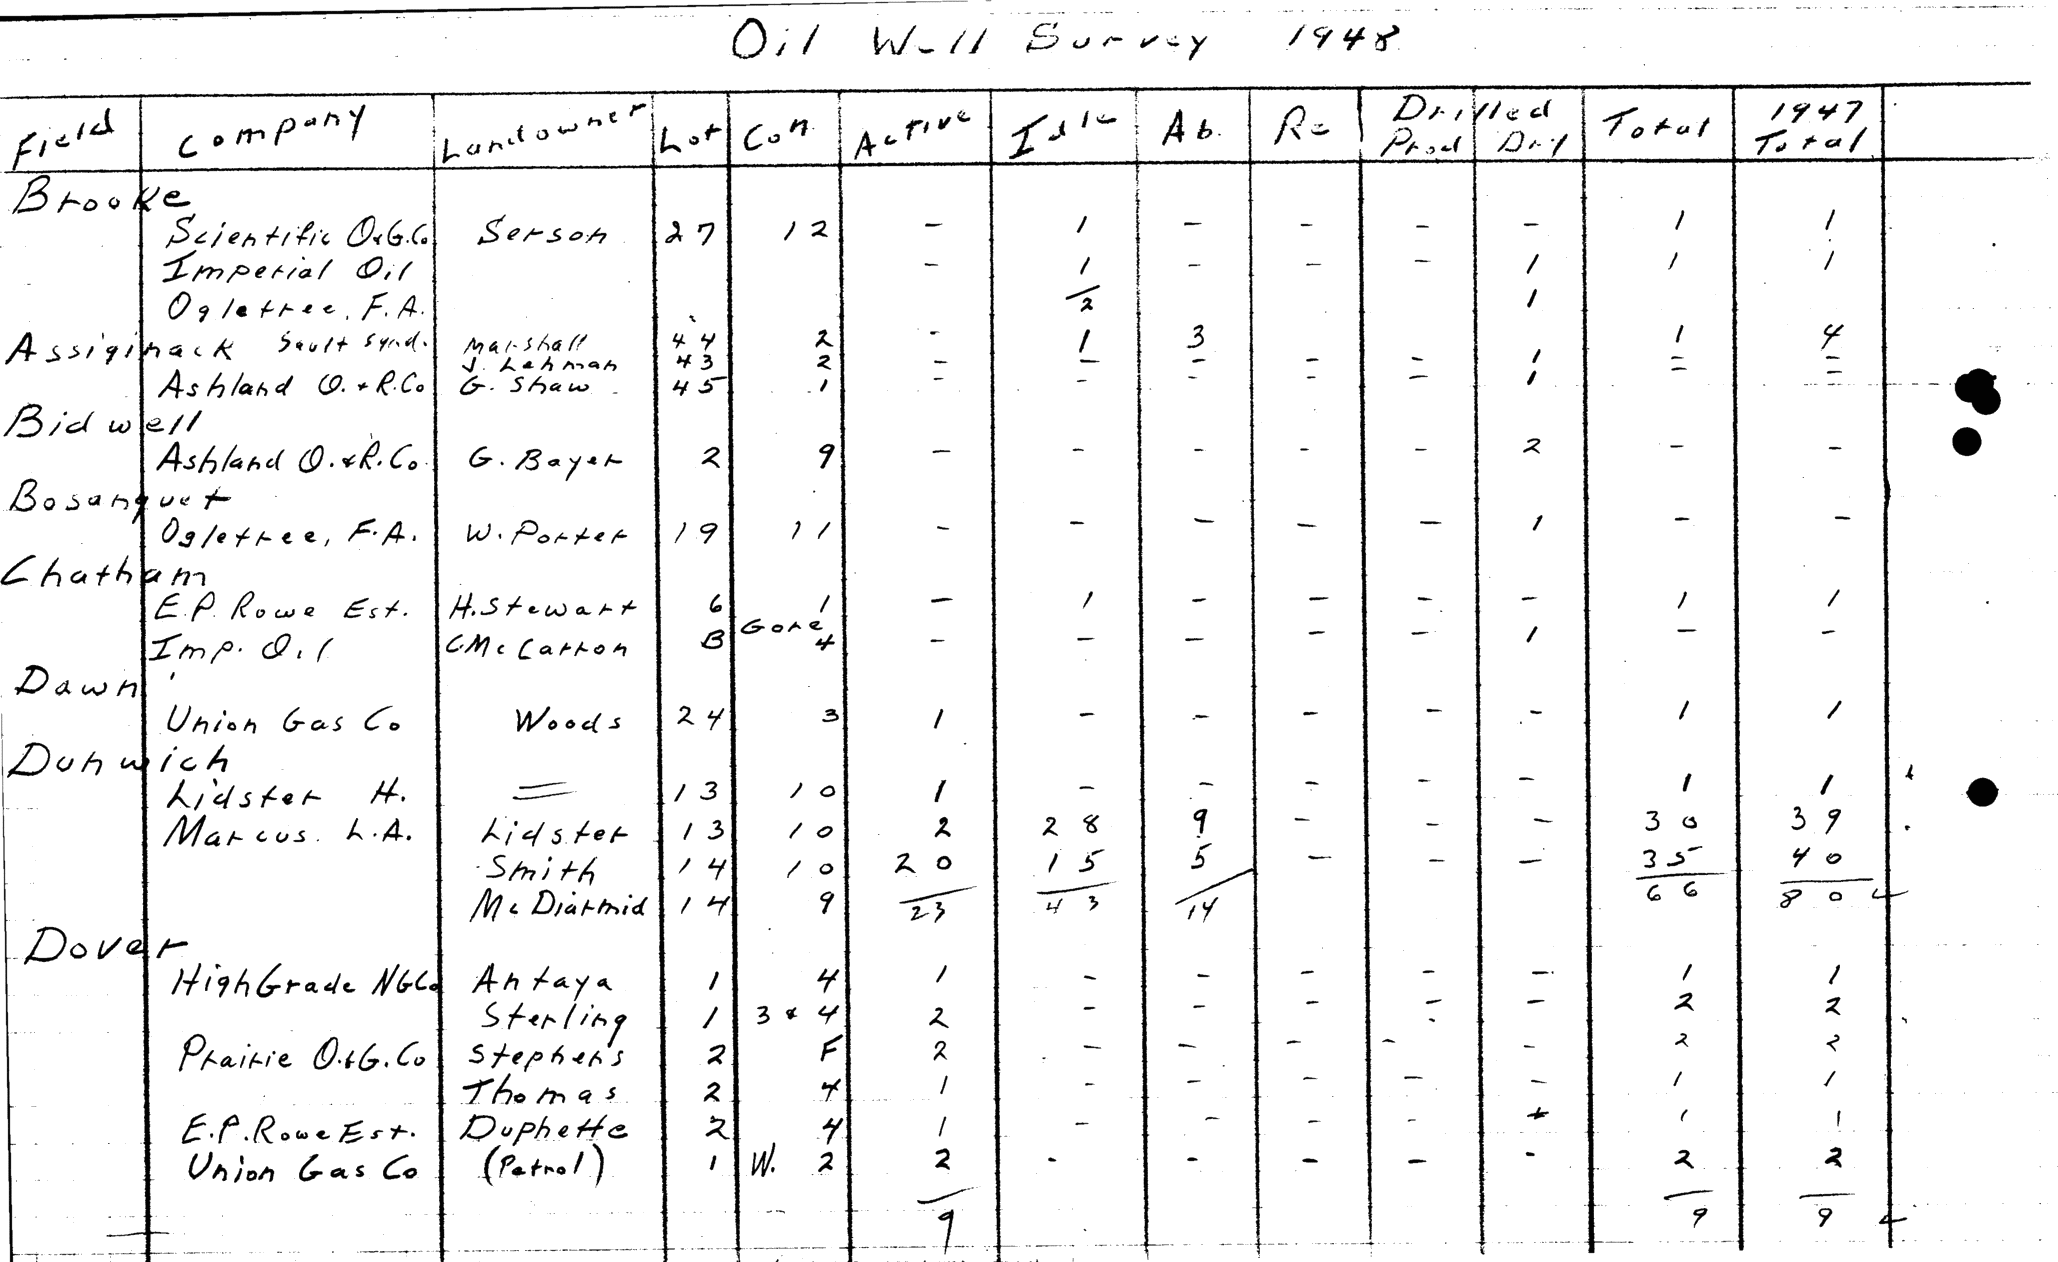 Oil Well Survey 1948
Field Company Landowner Lot Con Active Idle Ab. Re Drilled Prod Dry Total 1947 Total
Brooke
Scientific O&G.Co Serson 27 12 - 1 - - - - 1 1
Imperial Oil - 1 - - - 1 1 1
Ogletree, F.A. 2 1
Assiginack Sault Synd. Marshall 44 2 - 1 3 1 4
J. Lehman 43 2 - - - - - 1 - -
Ashland O. & R.Co G. Shaw 45 1 - - - - - 1 - -
Bidwell
Ashland O. & R. Co. G. Bayer 2 9 - - - - - 2 - -
Bosanquet
Ogletree, F.A. W. Porter 19 11 - - - - - 1 - -
Chatham
E.P. Rowe Est. H. Stewart 6 1 - 1 - - - - 1 1
Imp. Oil C McCarron B Gore 4 - - - - - 1 - -
Dawn
Union Gas Co Woods 24 3 1 - - - - - 1 1
Dunwich
Lidster H. = 13 10 1 - - - - - 1 1
Marcus. L.A. Lidster 13 10 2 28 9 - - - 30 39
Smith 14 10 20 15 5 - - - 35 40
McDiarmid 14 9 23 43 14 66 80
Dover
High Grade NGCo Antaya 1 4 1 - - - - - 1 1
Sterling 1 3 & 4 2 - - - - - 2 2
Prairie O.&G. Co Stephens 2 F 2 - - - - - 2 2
Thomas 2 4 1 - - - - - 1 1
E.P. Rowe Est. Duphette 2 4 1 - - - - 1 1
Union Gas Co (Petrol) 1 W. 2 2 - - - - - 2 2
9 9 9